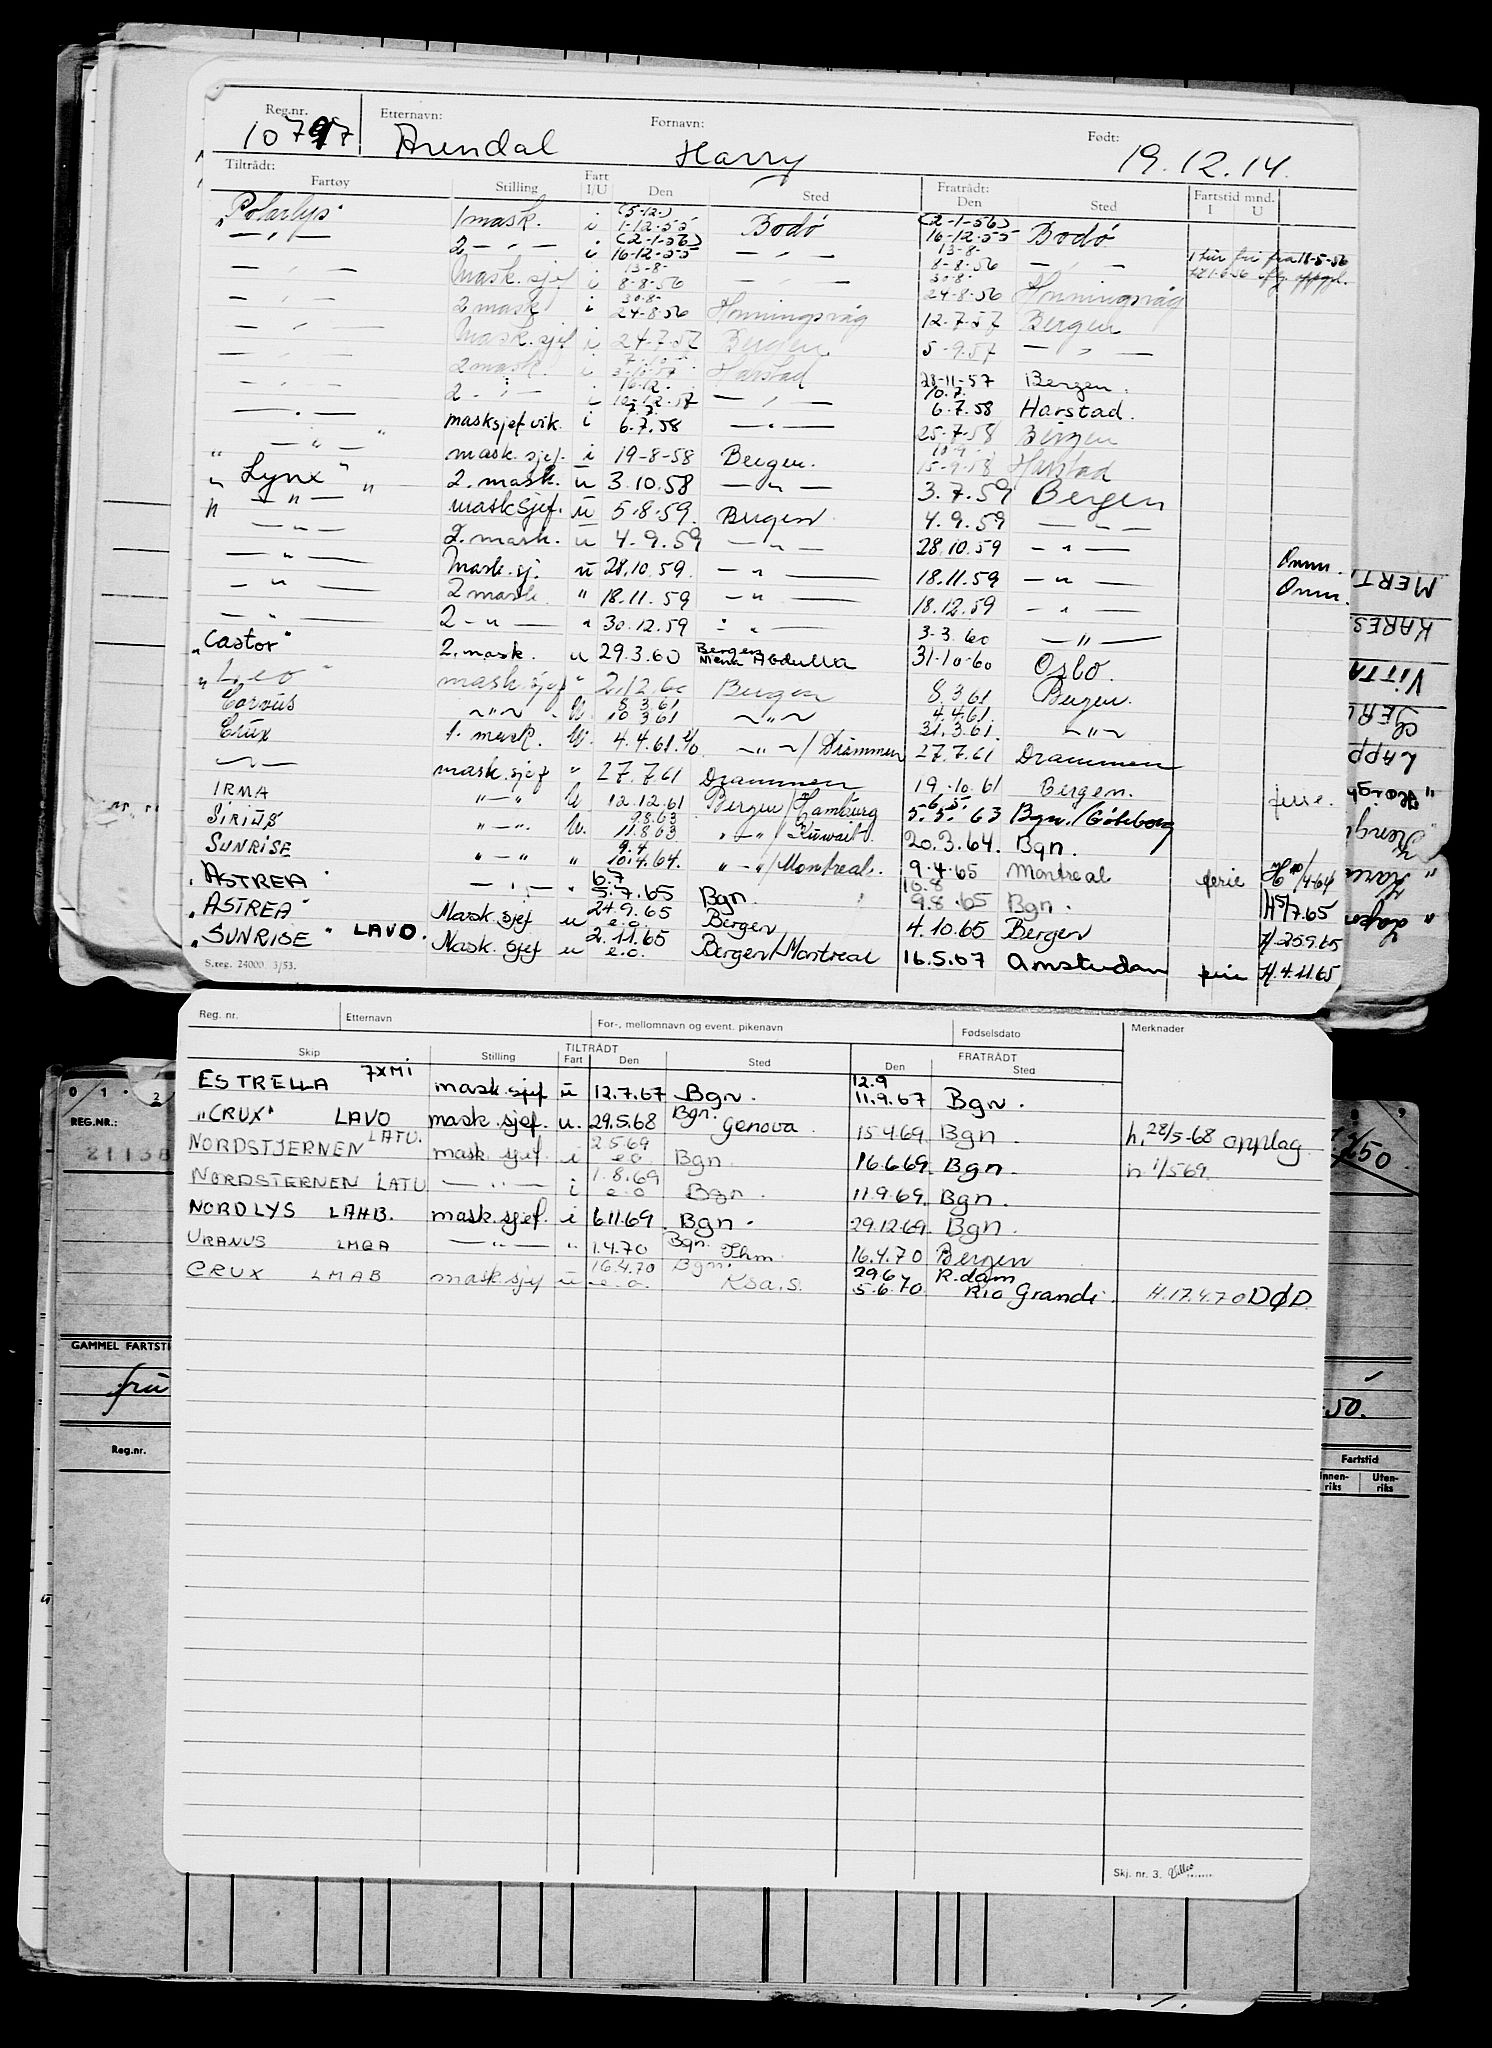 Reg.nr. Etternavn: Fornavn: Født:
10797 Arendal Harry 19.12.14.
Tiltrådt: Fratrådt:
Fartøy Stilling Fart I/U Den Sted Den Sted Fartstid mnd. I U
"Polarlys" 1 mask. i (5-12-) 1-12-55 Bodö (2-1-56) 16-12-55 Bodö
— " — 2 — " — i (2-1-56) 16-12-55 — " — 13-8- 8-8-56 — " — 1 tür fri fra 18-5-56
— " — Mask.sjef i 13-8- 8-8-56 — " — 30-8- 24-8-56 Honningsvåg
— " — 2 mask i 30-8- 24-8-56 Honningsvåg 12.7.57 Bergen
— " — Mask.sjef i 24-7-57 Bergen 5-9.57 — " —
— " — 2 mask. i 7-10- Harstad 28-11-57 Bergen.
— " — 2 - " — i 16-12- 10-12-57 — " — 10.7. 6.7.58 Harstad.
— " — masksjef vik. i 7.7. 6.7.58 — " — 25-7-58 Bergen
— " — mask.sjef. i 19-8-58 Bergen. 15-9-58 Harstad
"Lynx" 2. mask. u 3.10.58 — " — 3.7.59 Bergen
" — " — " masksjef. u 5.8.59. Bergen 4.9.59 — " —
— " — 2. mask. u 4.9.59 — " — 28.10.59 — " —
— " — Mask.sj. u 28.10.59. — " — 18.11.59 — " — Omm.
— " — 2 mask. " 18.11.59 — " — 18.12.59 — " — Omm.
— " — 2 - " — " 30.12.59 " " — 3.3.60 — " —
"Castor" 2. mask. u 29.3.60 Bergen Mena Abdulla 31-10-60 Oslo.
"Leo" mask.sjef " 2.12.60 Bergen 8.3.61 Bergen.
Corvus — " — U. 8.3.61 10.3.61 — " — 4.4.61. 31.3.61. — " —
Crux 1. mask. U. 4.4.61. — " — / Drammen 27.7.61 Drammen
— " — mask.sjef " 27.7.61 Drammen 19.10.61 Bergen.
IRMA — " — U 12.12.61 Bergen/Hamburg 6.5. 5.5.63 Bgn./Göteborg ferie.
SIRIUS — " — U. 9.8.63 11.8.63 " — " — / Kuwait 20.3.64. Bgn.
SUNRISE " — " " 9.4 10.4.64. " — " / Montreal. 9.4.65 Montreal ferie
"ASTREA" — " — " 6.7 5.7.65 Bgn. 10.8 9.8.65 Bgn. H 5/7.65
"ASTREA" Mask.sjef u 24.9.65 e.o. Bergen 4.10.65 Bergen H.25.9.65
"SUNRISE" LAVO. Mask.sjef u 2.11.65 e.o. Bergen/Montreal 16.5.67 Amsterdam ferie H.4.11.65
S.reg. 24000. 3/53.
MERT.
KARES
VITTA
LAPP
Reg. nr. Etternavn For-, mellomnavn og event. pikenavn Fødselsdato Merknader
TILTRÅDT FRATRÅDT
Skip Stilling Fart Den Sted Den Sted
ESTRELLA 7XMI mask.sjef u 12.7.67 Bgn. 12.9 11.9.67 Bgn.
"CRUX" LAVO mask.sjef. u. 29.5.68 Bgn. Genova 15.4.69. Bgn. h. 28/5-68 opplag
NORDSTJERNEN LATU. mask.sjef. i 2.5.69 e.o. Bgn. 16.6.69. Bgn. h 1/5 69.
NORDSTERNEN LATU — " — i 1.8.69 e.o Bgn. 11.9.69. Bgn.
NORDLYS LAHB. mask.sjef. i 6.11.69. Bgn. 29.12.69. Bgn.
URANUS LMQA — " — " 1.4.70 Bgn. Thm. 16.4.70 Bergen
CRUX LMAB mask.sjef u 16.4.70 e.o. Bgn. Ksa.S. 29.6 5.6.70 R.dam Rio Grande. H.17.4.70 DØD.
Skj. nr. 3.
0 1 2
REG.NR.:
21138
GAMMEL FARTSTI
fru
Reg.nr.
.50.
Fartstid
Innen-riks Uten-riks